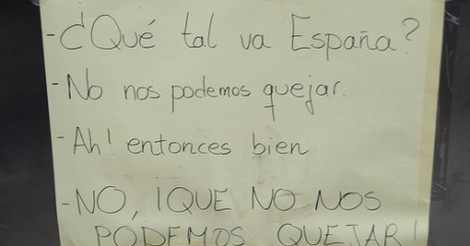 - ¿Qué tal va España?
- No nos podemos quejar.
- Ah! entonces bien
- NO, ¡QUE NO NOS
PODEMOS QUEJAR!